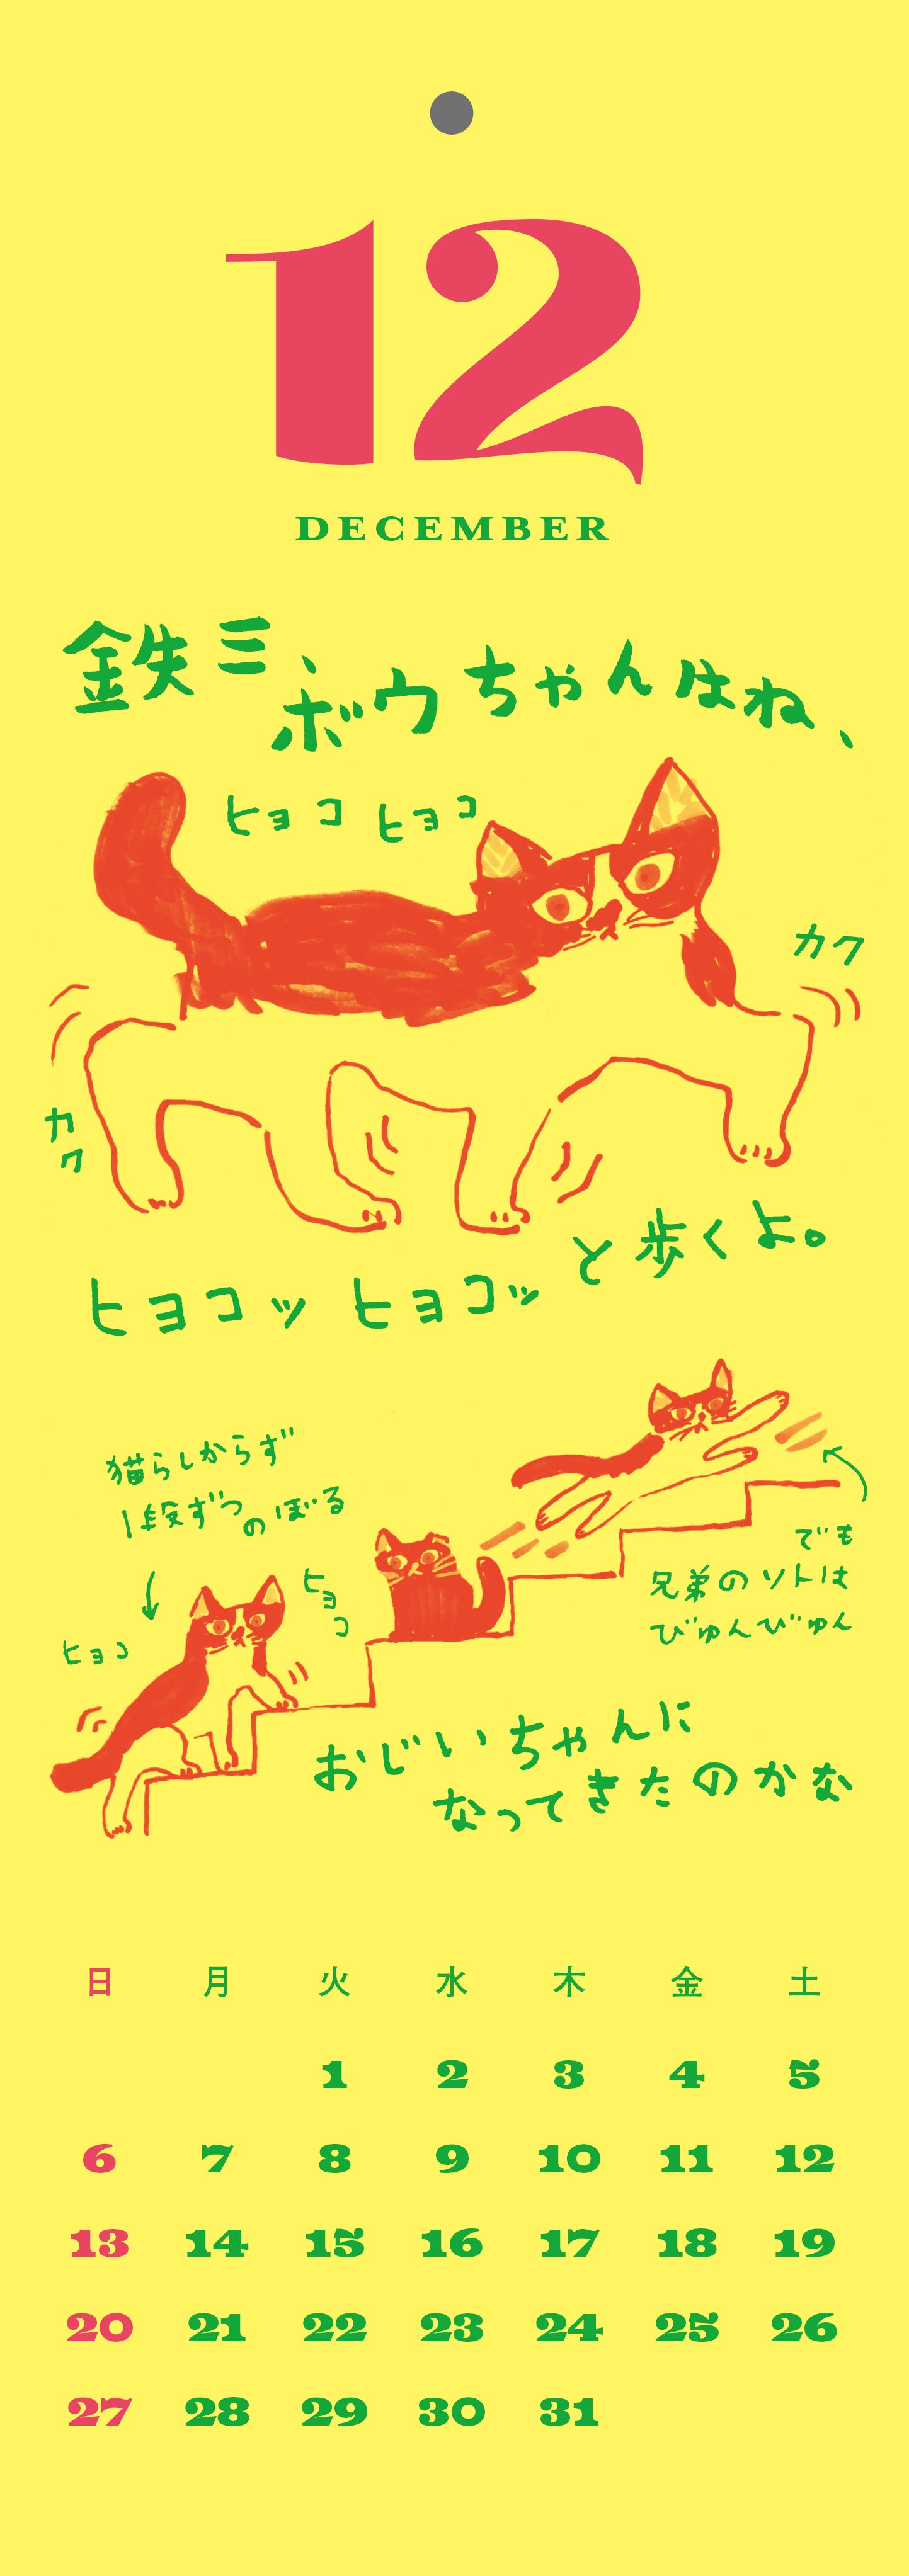 12
DECEMBER
鉄三、
ボウちゃんはね、
ヒョコ ヒョコ
カク
カク
ヒョコッ ヒョコッと歩くよ。
猫らしからず
1段ずつのぼる
ヒョコ
ヒョコ
でも
兄弟のソトは
びゅんびゅん
おじいちゃんに
なってきたのかな
日 月 火 水 木 金 土
1 2 3 4 5
6 7 8 9 10 11 12
13 14 15 16 17 18 19
20 21 22 23 24 25 26
27 28 29 30 31